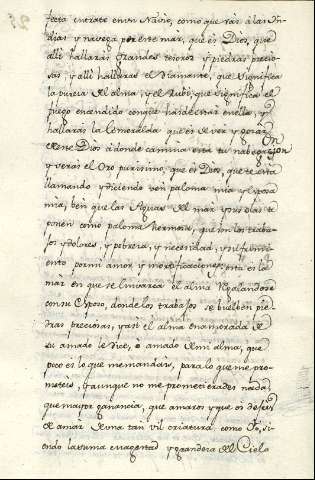 25
fecta entrate en un Nauio, como que vas à las Yn
dias y nauega por este mar, que es Dios, que
alli hallaras grandes tesoros y piedras precio
sas y alli hallaras el Diamante, que significa
la pureza del alma, y el Rubi, que significa el
fuego encendido conque has de estar y
hallaras la Esmeralda que es el ver y gozar
de este Dios à donde camina esta tu nabegazion
y veras el Oro purissimo, que es Dios, que te esta
llamando y diciendo ven paloma mia y esposa
mia, ben que las Aguas del mar y sus olas te
ponen como paloma hermosa, que son los traba
jos y dolores, y pobreza, y necesidad, y sufrimi
ento por mi amor y mortificaciones, esta es la
mar en que se embarca el alma Regalandose
con su Esposo, donde los trabajos se buelben pie
dras preciosas, y assi el alma enamorada de
su amado le dice, ò amado de mi alma, que
poco es lo que me mandais, para lo que me pro
meteis, y aunque no me prometierades nada,
que mayor ganancia, que amaros y que os dejeis
de amar de una tan vil criatura, como Yo, si
endo la suma magestad y grandeza del Cielo